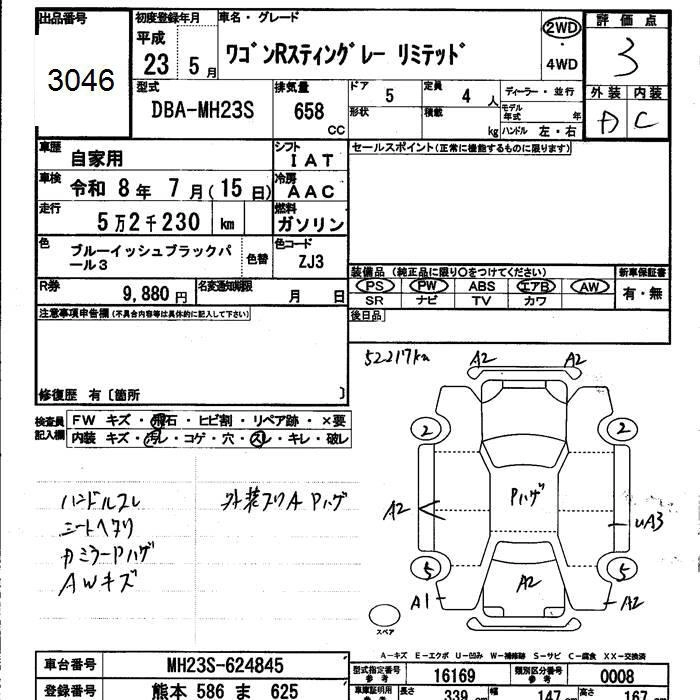 出品番号
3046
初度登録年月
平成
23 5月
車名・グレード
ワゴンRスティングレー リミテッド
2WD
・
4WD
評価点
3
外装 内装
D C
型式
DBA-MH23S
排気量
658
CC
ドア 5
定員 4 人
形状
積載 kg
ディーラー・並行
モデル年式 年
ハンドル 左・右
車歴
自家用
シフト
IAT
車検
令和 8年 7月(15日)
冷房
AAC
走行
5万2千230 km
燃料
ガソリン
色
ブルーイッシュブラックパール3
色替
色コード
ZJ3
R券
9,880円
名変通知期限
月 日
セールスポイント(正常に機能するものに限ります)
装備品 (純正品に限り○をつけてください)
PS PW ABS エアB AW
SR ナビ TV カワ
新車保証書
有・無
後日品
注意事項申告欄(不具合内容等は具体的に記入して下さい)
修復歴 有〔箇所 〕
検査員記入欄
FW キズ・飛石・ヒビ割・リペア跡・×要
内装 キズ・汚レ・コゲ・穴・スレ・キレ・破レ
ハンドルスレ
シートヘタリ
カミラーPハゲ
AWキズ
外装スリA Pハゲ
52217km
A2
A2
2
2
A2
Pハゲ
uA3
5
5
A1
A2
A2
スペア
A-キズ E-エクボ U-凹み W-補修跡 S-サビ C-腐食 XX-交換済
車台番号
MH23S-624845
登録番号
熊本 586 ま 625
型式指定番号
参考
16169
類別区分番号
参考
0008
車庫証明用
参考
長さ 339 cm
幅 147 cm
高さ 167 cm